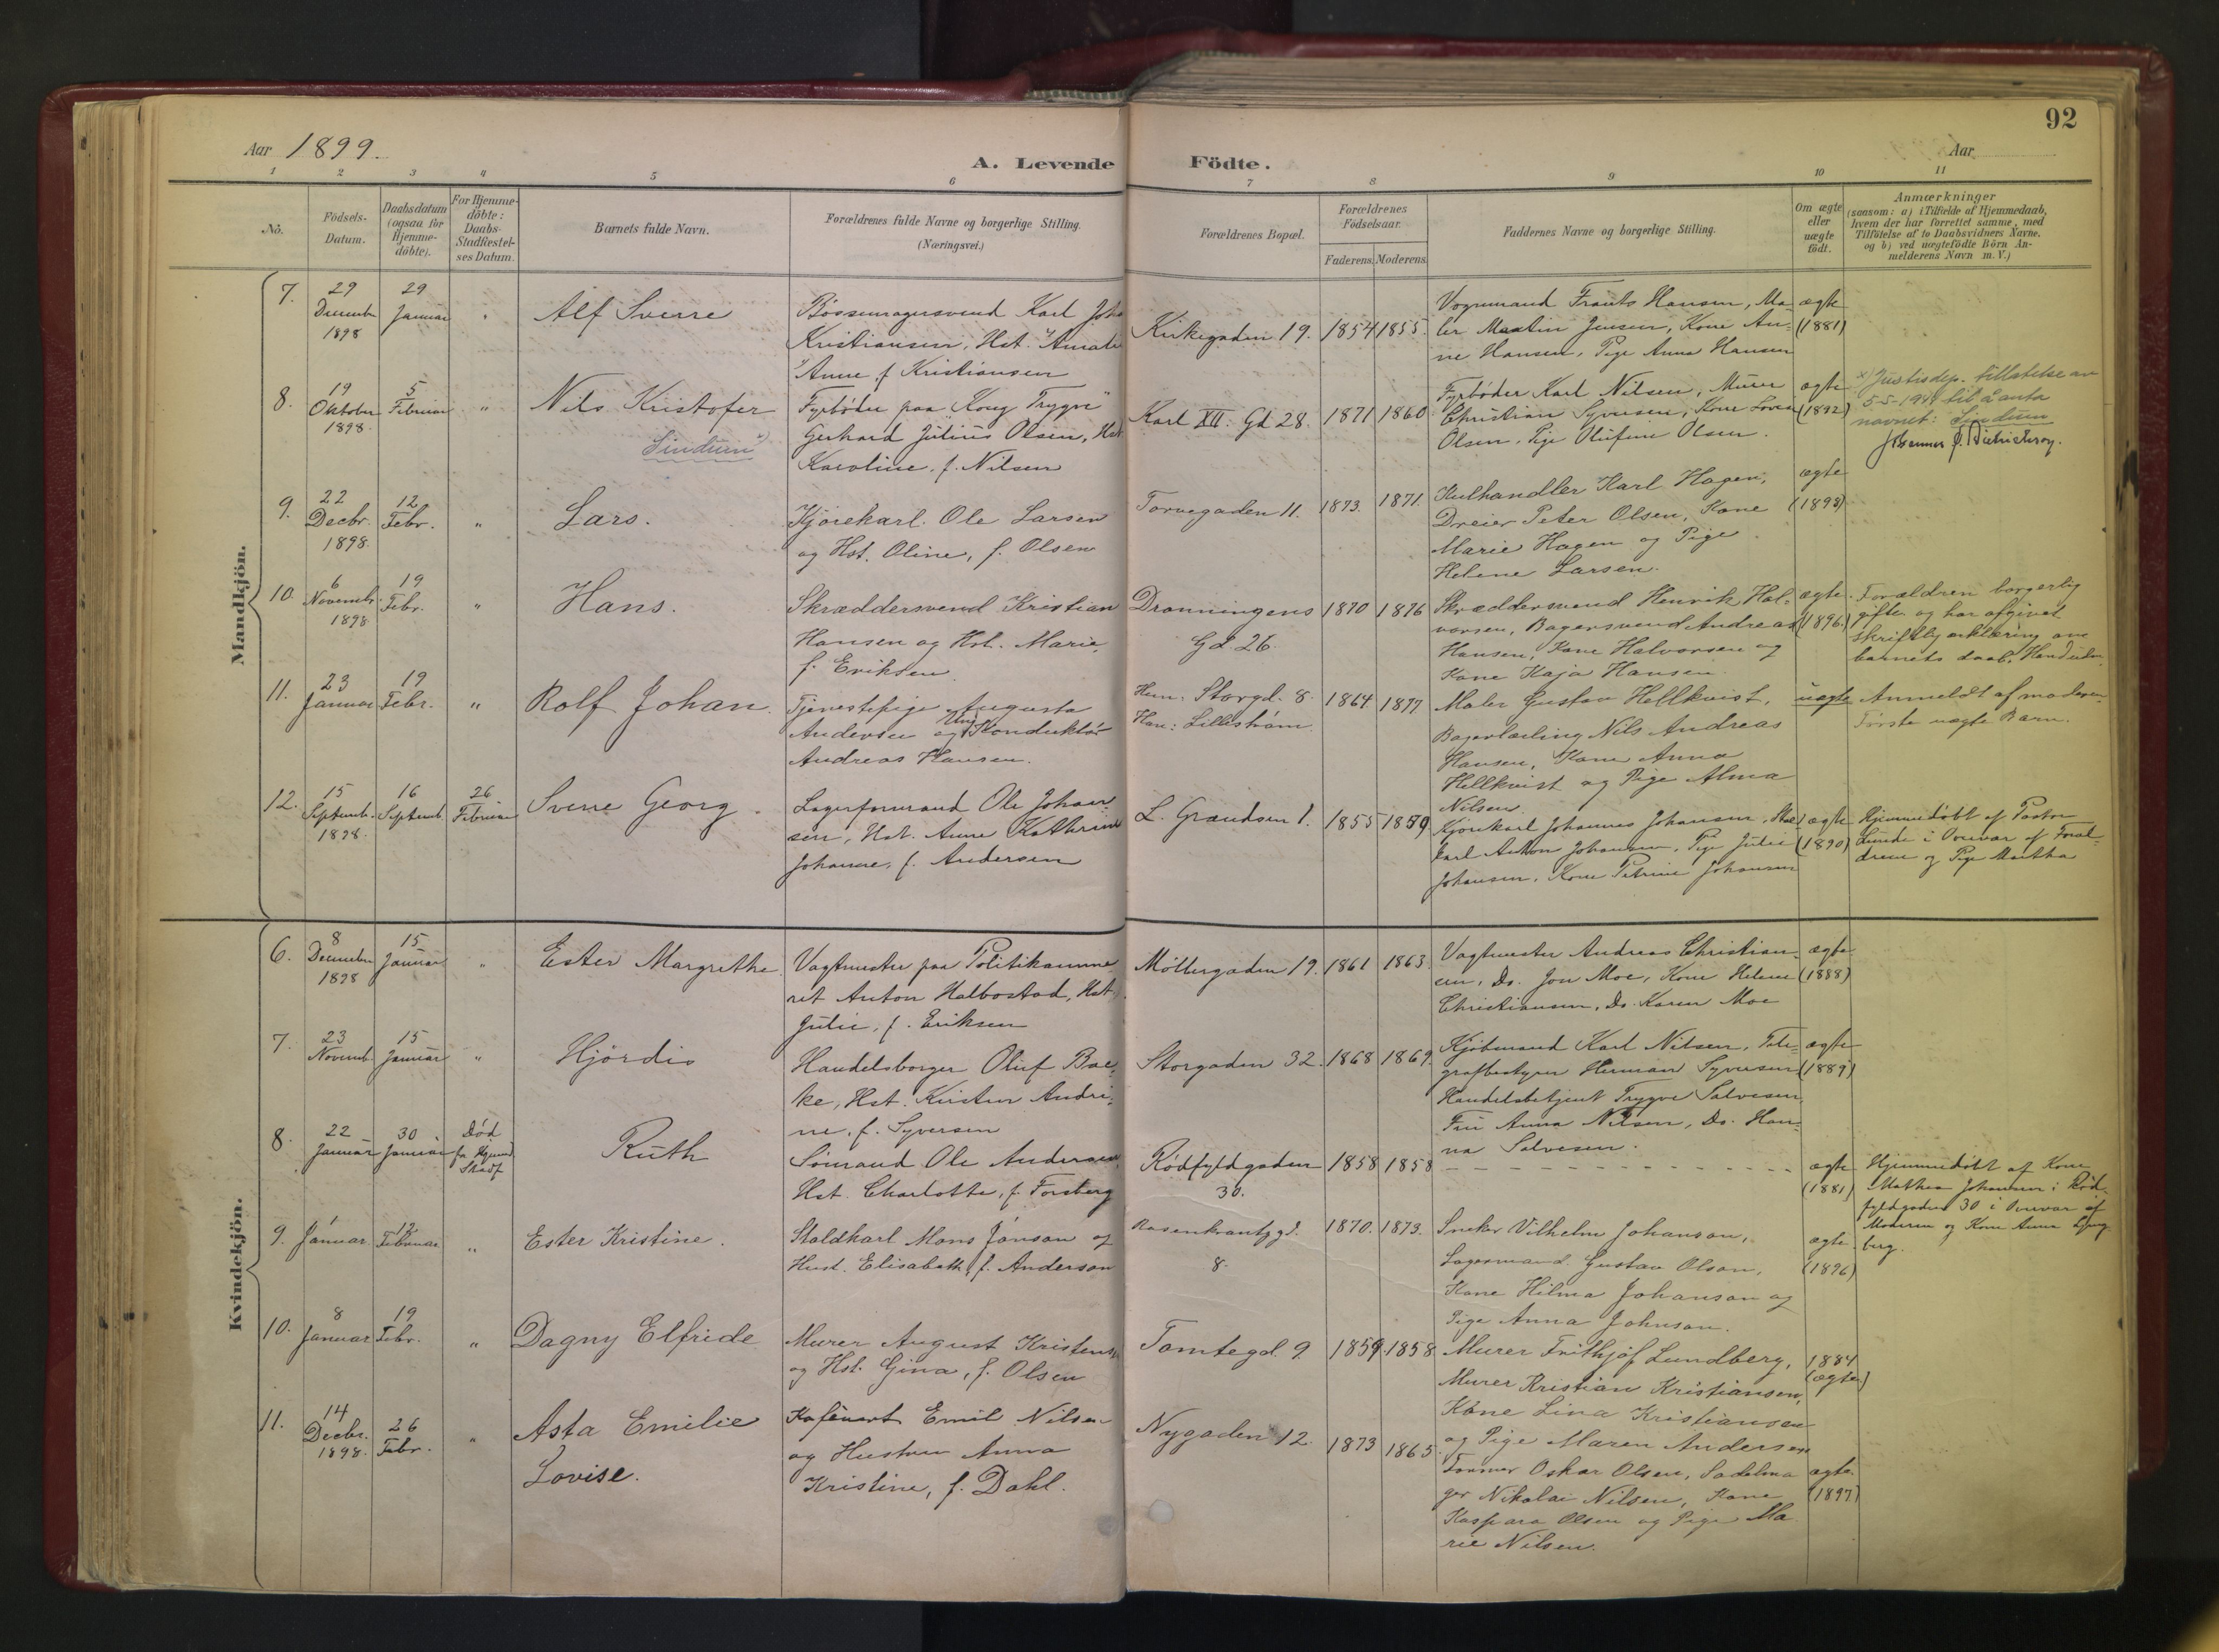 92
Aar 1899.
A. Levende Födte.
Aar
1 2 3 4 5 6 7 8 9 10 11
No.
Födsels-Datum.
Daabsdatum (ogsaa for Hjemme-döbte).
For Hjemme-döbte: Daabs-Stadfæstel-ses Datum.
Barnets fulde Navn.
Forældrenes fulde Navne og borgerlige Stilling. (Næringsvei.)
Forældrenes Bopæl.
Forældrenes Födselsaar.
Faderens. Moderens.
Faddernes Navne og borgerlige Stilling.
Om ægte eller uægte födt.
Anmærkninger
(saasom: a) i Tilfælde af Hjemmedaab,
hvem der har forrettet samme, med
Tilföielse af to Daabsvidners Navne,
og b) ved uægtefödte Börn An-
melderens Navn m. V.)
Mandkjön.
7.
29 Decemb 1898
29 Januar
"
Alf Sverre
Bøssemagersvend Karl Joh
Kristiansen, Hst. Amalie
Anne f. Kristiansen
Kirkegaden 19.
1854 1855.
Vognmand Frants Hansen, Ma-
ler Martin Jensen, Kone An-
ne Hansen, Pige Anna Hansen
ægte (1881)
8.
19 Oktober 1898.
5 Februar
"
Nils Kristofer
Lindum x)
Fyrbøder paa "Kong Trygve"
Gerhard Julius Olsen, Hst
Karoline, f. Nilsen
Karl XII. Gd 28.
1871 1860
Fyrbøder Karl Nilsen, Murer
Christian Syversen, Kone Lovise
Olsen, Pige Olufine Olsen.
ægte (1892)
x) Justisdep. tillatelse av
5-5-1944 til å anta
navnet: Lindum
9.
22 Decbr. 1898.
12 Febr.
"
Lars.
Kjørekarl Ole Larsen
og Hst. Oline, f. Olsen
Torvegaden 11.
1873. 1871.
Kulhandler Karl Hagen,
Dreier Peter Olsen, Kone
Marie Hagen og Pige
Helene Larsen.
ægte (1898)
10.
6 Novembr. 1898
19 Febr.
"
Hans.
Skræddersvend Kristian
Hansen og Hst. Marie,
f. Eriksen.
Dronningens
Gd 26.
1870 1876
Skræddersvend Henrik Hal-
vorsen, Bagersvend Andreas
Hansen, Kone Halvorsen og
Kone Kaja Hansen.
ægte (1896.)
Forældren borgerlig
gifte og har afgivet
skriftlig erklæring om
barnets daab.
11.
23 Januar
19 Febr.
"
Rolf Johan.
Tjenestepige Augusta
Andersen og Ung. Konduktør
Andreas Hansen.
Hun: Storgd. 8.
Han: Lillestrøm.
1864 1877.
Maler Gustav Hellkvist,
Bagerlærling Nils Andreas
Hansen, Kone Anna
Hellkvist og Pige Alma
Nilsen
uægte
Anmeldt af moderen
Første uægte Barn.
12.
15 Septemb. 1898.
16 Septemb.
26 Februar
Sverre Georg.
Lagerformand Ole Johan-
sen, Hst. Anne Kathrine
Johanne, f. Andersen
L. Grændsen 1.
1855 1859
Kjørekarl Johannes Johansen,
karl Anton Johansen, Pige Julie
Johansen, Kone Petrine Johansen
ægte (1890)
Hjemmedøbt af Pastor
Lunde i Overvær af Foræl-
drene og Pige Martha
Kvindekjön.
6.
8 Decemben 1898
15 Januar
"
Ester Margrethe
Vagtmester paa Politikamme-
ret Anton Halbostad, Hst.
Julie, f. Eriksen
Møllergaden 19.
1861 1863
Vagtmester Andreas Christian-
sen, Do. Jon Moe, Kone Helene
Christiansen, Do. Karen Moe
ægte (1888)
7.
23 Novemb.
15 Januar
"
Hjørdis
Handelsborger Oluf Bac-
ke, Hst. Kirsten Andri-
ne, f. Syversen
Storgaden 32.
1868 1869.
Kjøbmand Karl Nilsen, Tele-
grafbestyrer Herman Syversen
Handelsbetjent Trygve Salvesen,
Fru Anna Nilsen, Do. Han-
na Salvesen.
ægte (1889)
8.
22 Januar
30 Januar
Død før Hjemd. Stadf
Ruth
Sømand Ole Andersen
Hst. Charlotte, f. Forsberg
Rødfyldgaden
30.
1858 1858
ægte (1881)
Hjemmedøbt af Kone
Mathea Johansen i Rød-
fyldgaden 30 i Overvær af
Moderen og Kone Anna Ljung-
berg.
9.
1 Januar
12 Februar
"
Ester Kristine.
Staldkarl Mons Jonson og
Hust. Elisabeth, f. Anderson
Rosenkrantzgd.
8.
1870. 1873.
Snekr Vilhelm Johanson,
Lagermand Gustav Olson,
Kone Hilma Johanson og
Pige Anna Johnson.
ægte (1896)
10.
8 Januar
19 Febr.
"
Dagny Elfride
Murer August Kristens
og Hst. Gina, f. Olsen
Tomtegd 9.
1859 1858
Murer Frithjof Lundberg,
Murer Kristian Kristiansen,
Kone Lina Kristiansen
og Pige Maren Andersen
1884 (ægte)
11.
14 Decbr. 1898.
26 Febr.
"
Asta Emilie
Lovise.
Kafévert Emil Nilsen
og Hustru Anna
Kristine, f. Dahl.
Nygaden 12.
1873 1865.
Former Oskar Olsen, Sadelma
ger Nikolai Nilsen, Kone
Kaspara Olsen og Pige Ma
rie Nilsen.
ægte (1897)